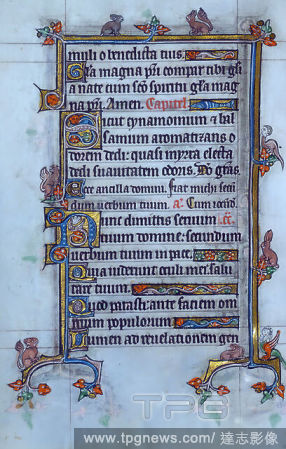 populi o benedicta tuis.
Gl'a magna pr'i compar tibi gl'a
a nate cum sc'o spiritu gl'a mag
na pr'i. Amen. Capitel'
Sicut cynamomum & bal
samum aromatizans o
dorem dedi: quasi mirra electa
dedi suavitatem odoris. Deo gr'as.
Ecce ancilla domini. fiat michi secu'
dum verbum tuum. a' Cum iocu'd'
Nunc dimittis servum
tuum domine: secundum
verbum tuum in pace.
Quia viderunt oculi mei: salu
tare tuum.
Quod parasti: ante faciem om
nium populorum.
Lumen ad revelationem gen
TPG
www.tpgnews.com/ 達志影像